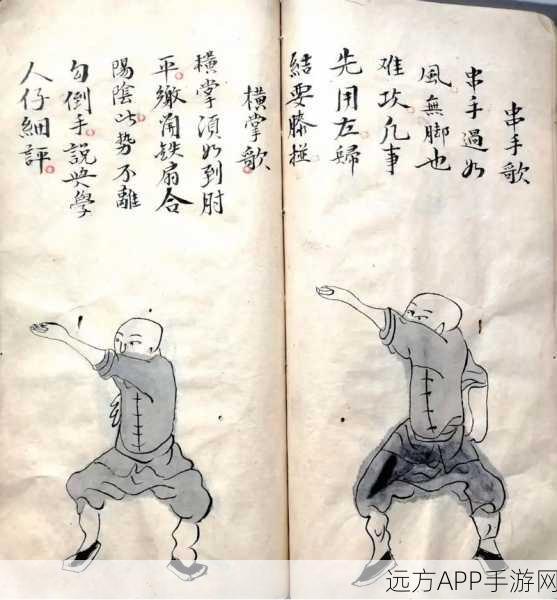 串手歌
串手過如
風無脚也
难攻凡事
先用左婦
結要膝
横掌歌
横掌湏如到肘
平繳角铁扇合
陽陰此势不離
勾倒手說與學
人仔細評
远方APP手游网